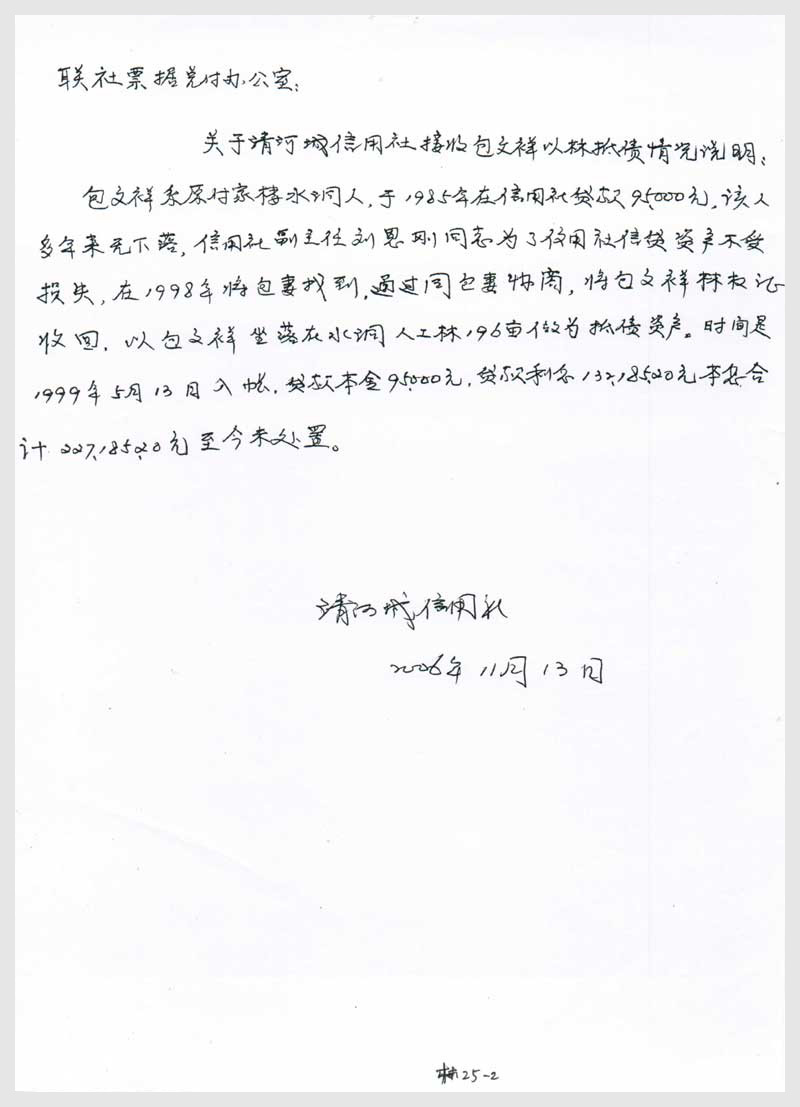 联社票据兑付办公室:
关于清河城信用社接收包文祥以林抵债情况说明:
包文祥系原付家楼水洞人,于1985年在信用社贷款95,000元,该人
多年来无下落,信用社副主任刘恩刚同志为了信用社信贷资产不受
损失,在1998年将包妻找到,通过同包妻协商,将包文祥林权证
收回.以包文祥坐落在水洞人工林196亩做为抵债资产。时间是
1999年5月13日入帐.贷款本金95,000元,贷款利息132,185.20元本息合
计227,185.20元至今未处置。
清河城信用社
2006年11月13日
林25-2